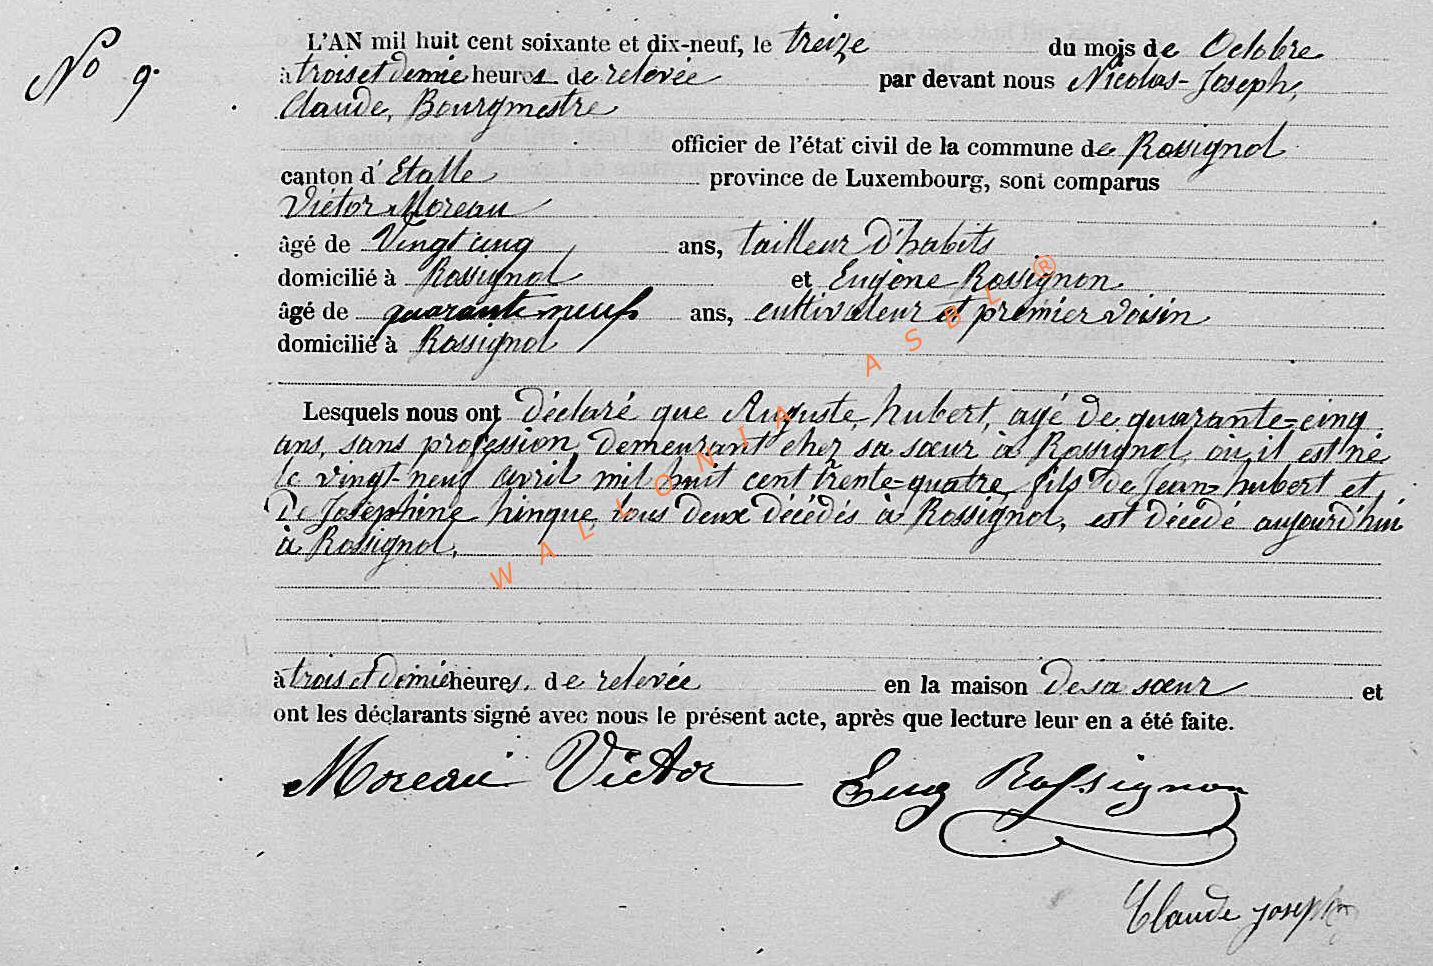 No 9.
L'AN mil huit cent soixante et dix-neuf, le treize du mois de Octobre
à trois et demie heures de relevée par devant nous Nicolas-Joseph,
Claude, Bourgmestre
officier de l'état civil de la commune de Rossignol
canton d'Etalle province de Luxembourg, sont comparus
Victor Moreau
âgé de Vingt cinq ans, tailleur d'habits
domicilié à Rossignol et Eugène Rossignon
âgé de quarante neuf ans, cultivateur et premier voisin
domicilié à Rossignol
Lesquels nous ont déclaré que Auguste, hubert, agé de quarante-cinq
ans, sans profession, demeurant chez sa sœur à Rossignol, où il est né
le vingt-neuf avril mil huit cent trente-quatre, fils de Jean-hubert et,
de Joséphine hinque, tous deux décédés à Rossignol, est décédé aujourd'hui
à Rossignol,
à trois et demie heures. de relevée en la maison de sa sœur et
ont les déclarants signé avec nous le présent acte, après que lecture leur en a été faite.
Moreau Victor Eug Rossignon
Claude Joseph
WALLONIA ASBL ®